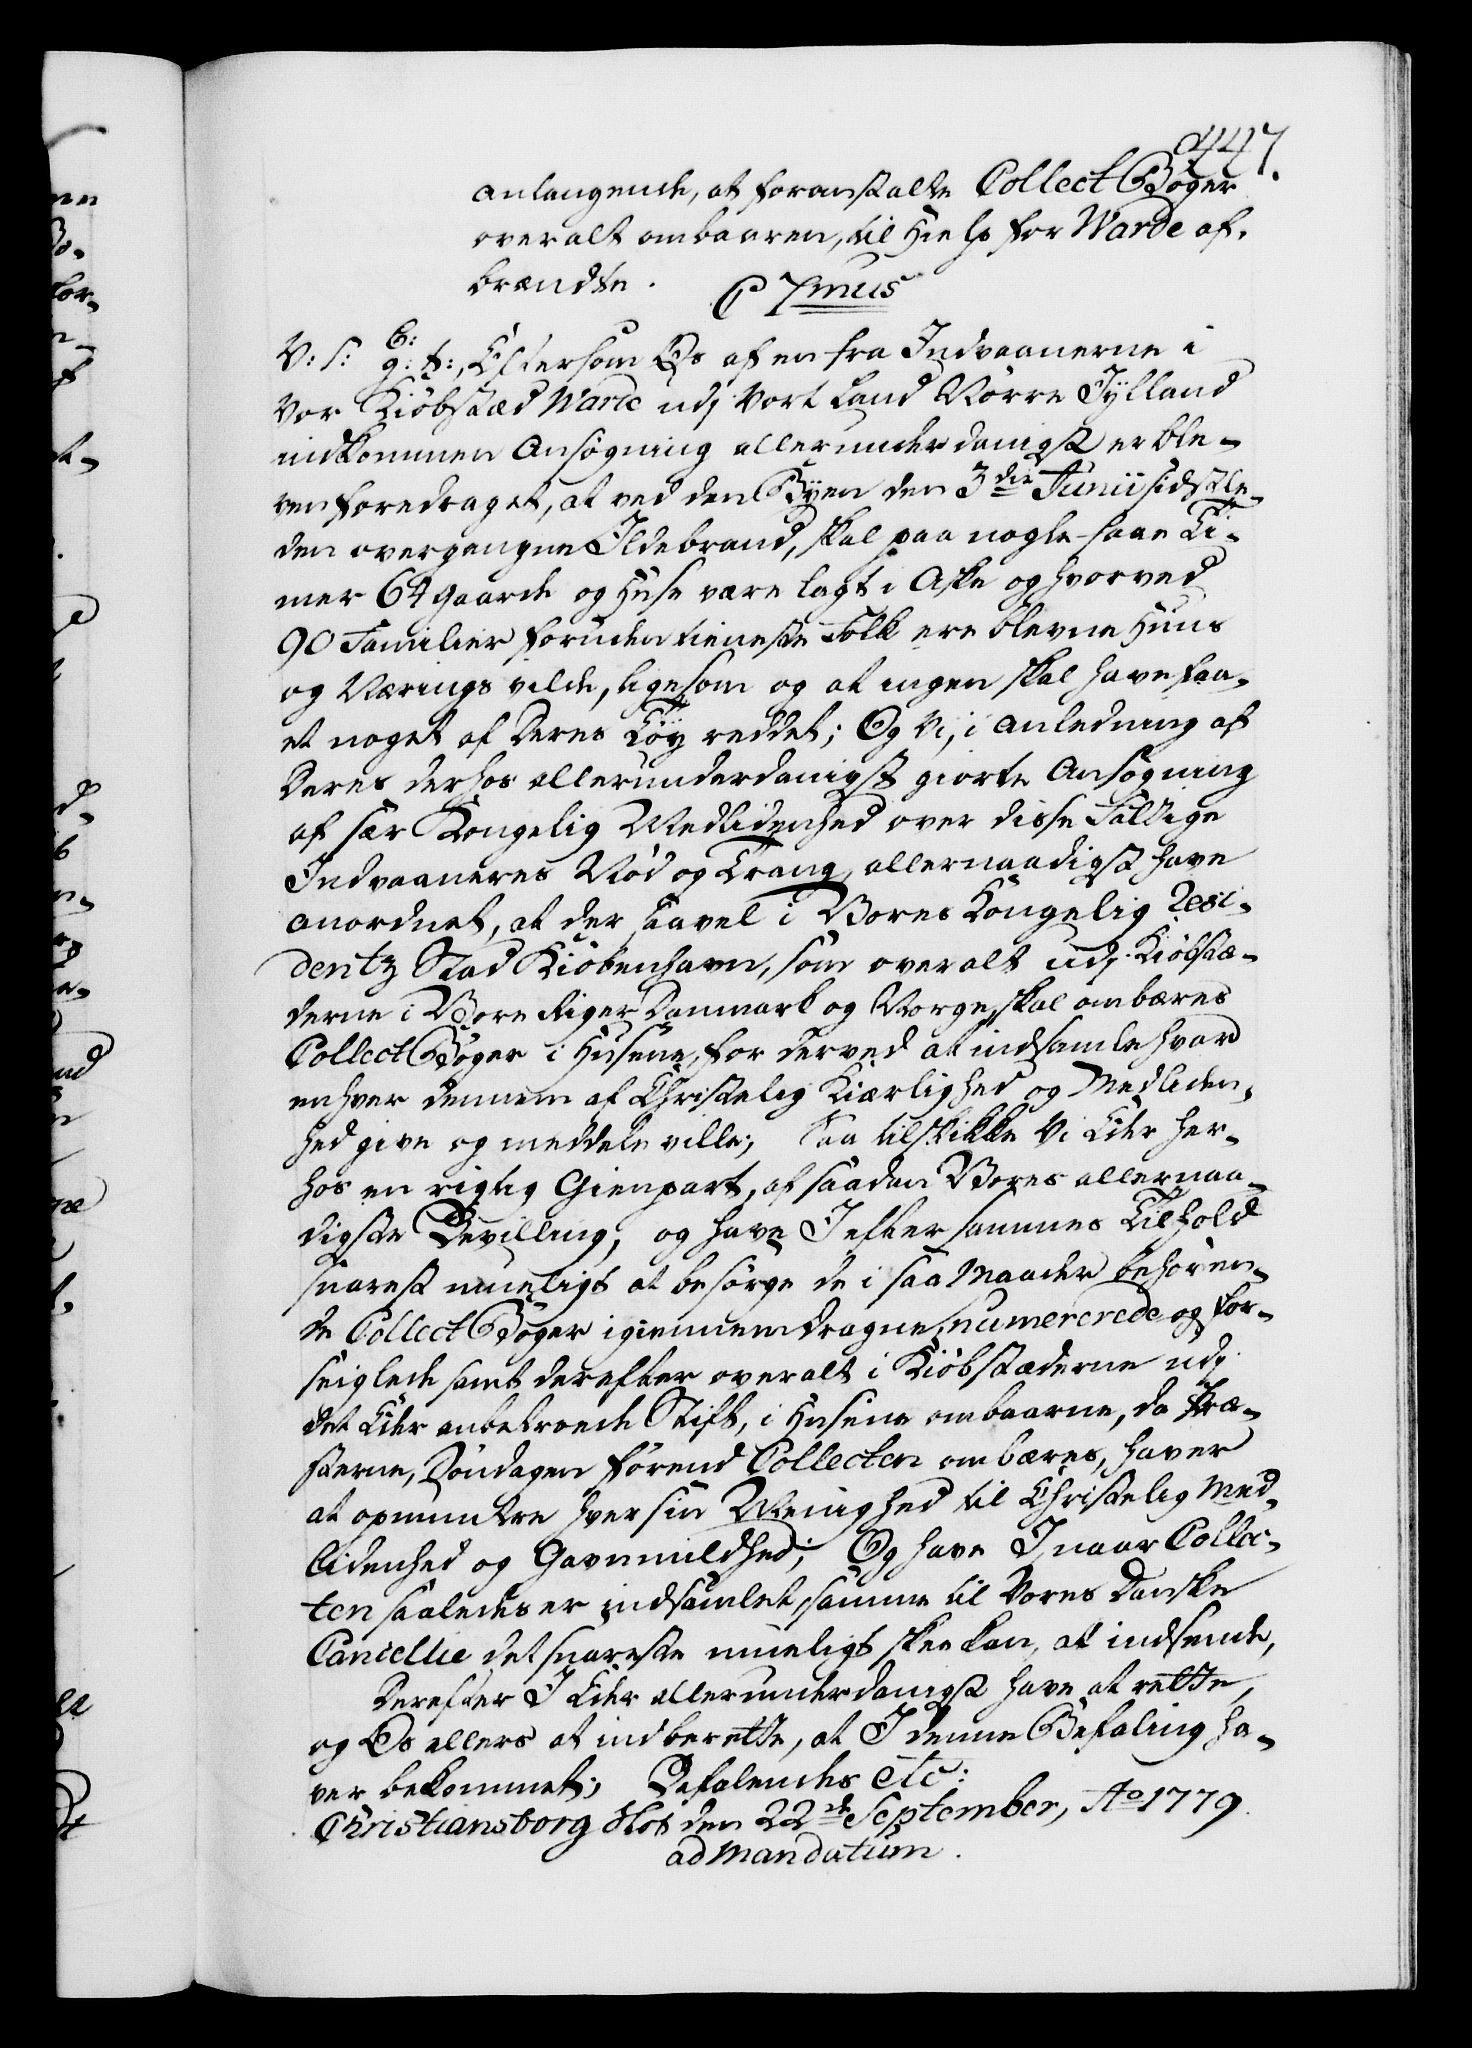 447.
anlangende, at foranstalte Collect Bøger
overalt ombaaren, til Hielp for Warde af-
brændte. C 7mus
V: S: G: g: t:, Eftersom Os af en fra Indvaanerne i
Vor Kiøbstæd Warde udj Vort Land Nørre Jylland
indkommen Ansøgning allerunderdanigst er ble-
ven foredraget, at ved den Byen den 3die Junii sidstle-
den overgangne Ildebrand, skal paa nogle faae Ti-
mer 64 Gaarde og Huse være lagt i Aske og hvorved
90 Familier foruden tieneste Folk ere blevne Huus
og Nærings vilde, ligesom og at ingen skal have faa-
et noget af Deres Tøy reddet; Og Vi, i Anledning af
Deres derhos allerunderdanigst giorte Ansøgning
af sær Kongelig Medlidenhed over disse Fattige
Indvaaneres Nød og Trang, allernaadigst have
anordnet, at der saavel i Vores Kongelig Resi-
dentz Stad Kiøbenhavn, som overalt udj Kiøbstæ-
derne i Vore Riger Danmark og Norge, skal ombæres
Collect Bøger i Husene, for derved at indsamle hvad
enhver dennem af Christelig Kiærlighed og Medliden-
hed give og meddele ville; Saa tilskikke Vi Eder her-
hos en rigtig Gienpart, af saadan Vores allernaa-
digste Bevilling, og have I efter sammes Tilhold
snarest mueligt at besørge de i saa Maader behøren-
de Collect Bøger igiennemdragne, numererede og for-
seiglede samt derefter overalt i Kiøbstæderne udj
det Eder anbetroede Stift, i Husene ombaarne, da Præ-
sterne, Søndagen førend Collecten ombæres, haver
at opmuntre hver sin Menighed til Christelig Med-
lidenhed og Gavmildhed; Og have I, naar Collec-
ten saaledes er indsamlet, samme til Vores Danske
Cancellie det snareste mueligt skee kan, at indsende,
Derefter I Eder allerunderdanigst have at rette,
og Os ellers at indberette, at I denne Befaling ha-
ver bekommet; Befalendes etc:
Christiansborg Slot den 22de September, Ao 1779.
ad mandatum.